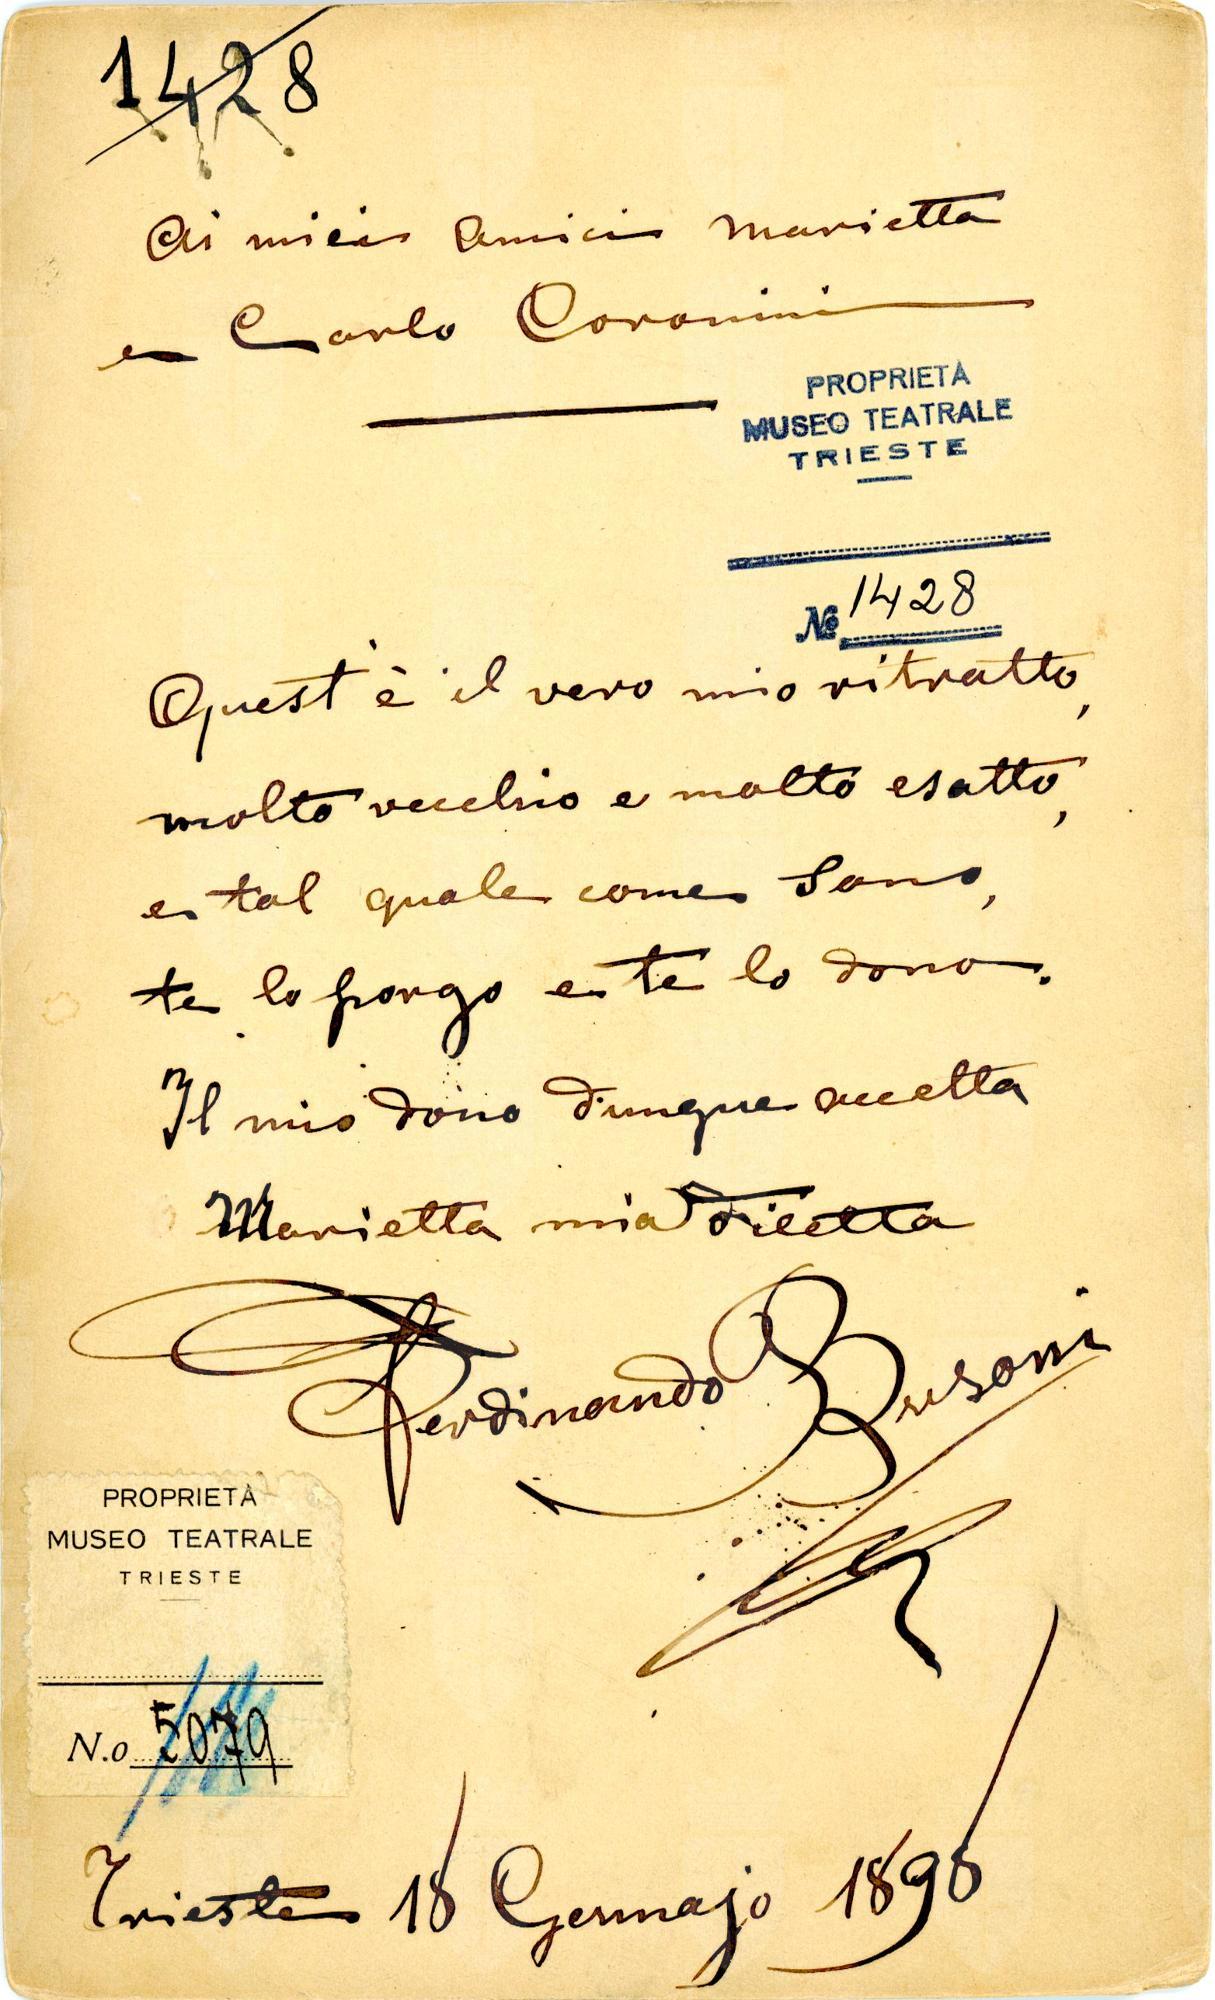 1428
Ai miei amici Marietta
e Carlo Coronini
PROPRIETÀ
MUSEO TEATRALE
TRIESTE
№ 1428
Quest'è il vero mio ritratto,
molto vecchio e molto esatto,
e tal quale come sono,
te lo porgo e te lo dono.
Il mio dono dunque accetta
Marietta mia diletta
Ferdinando Busoni
PROPRIETÀ
MUSEO TEATRALE
TRIESTE
N.o 5079
Trieste 18 Gennajo 1898